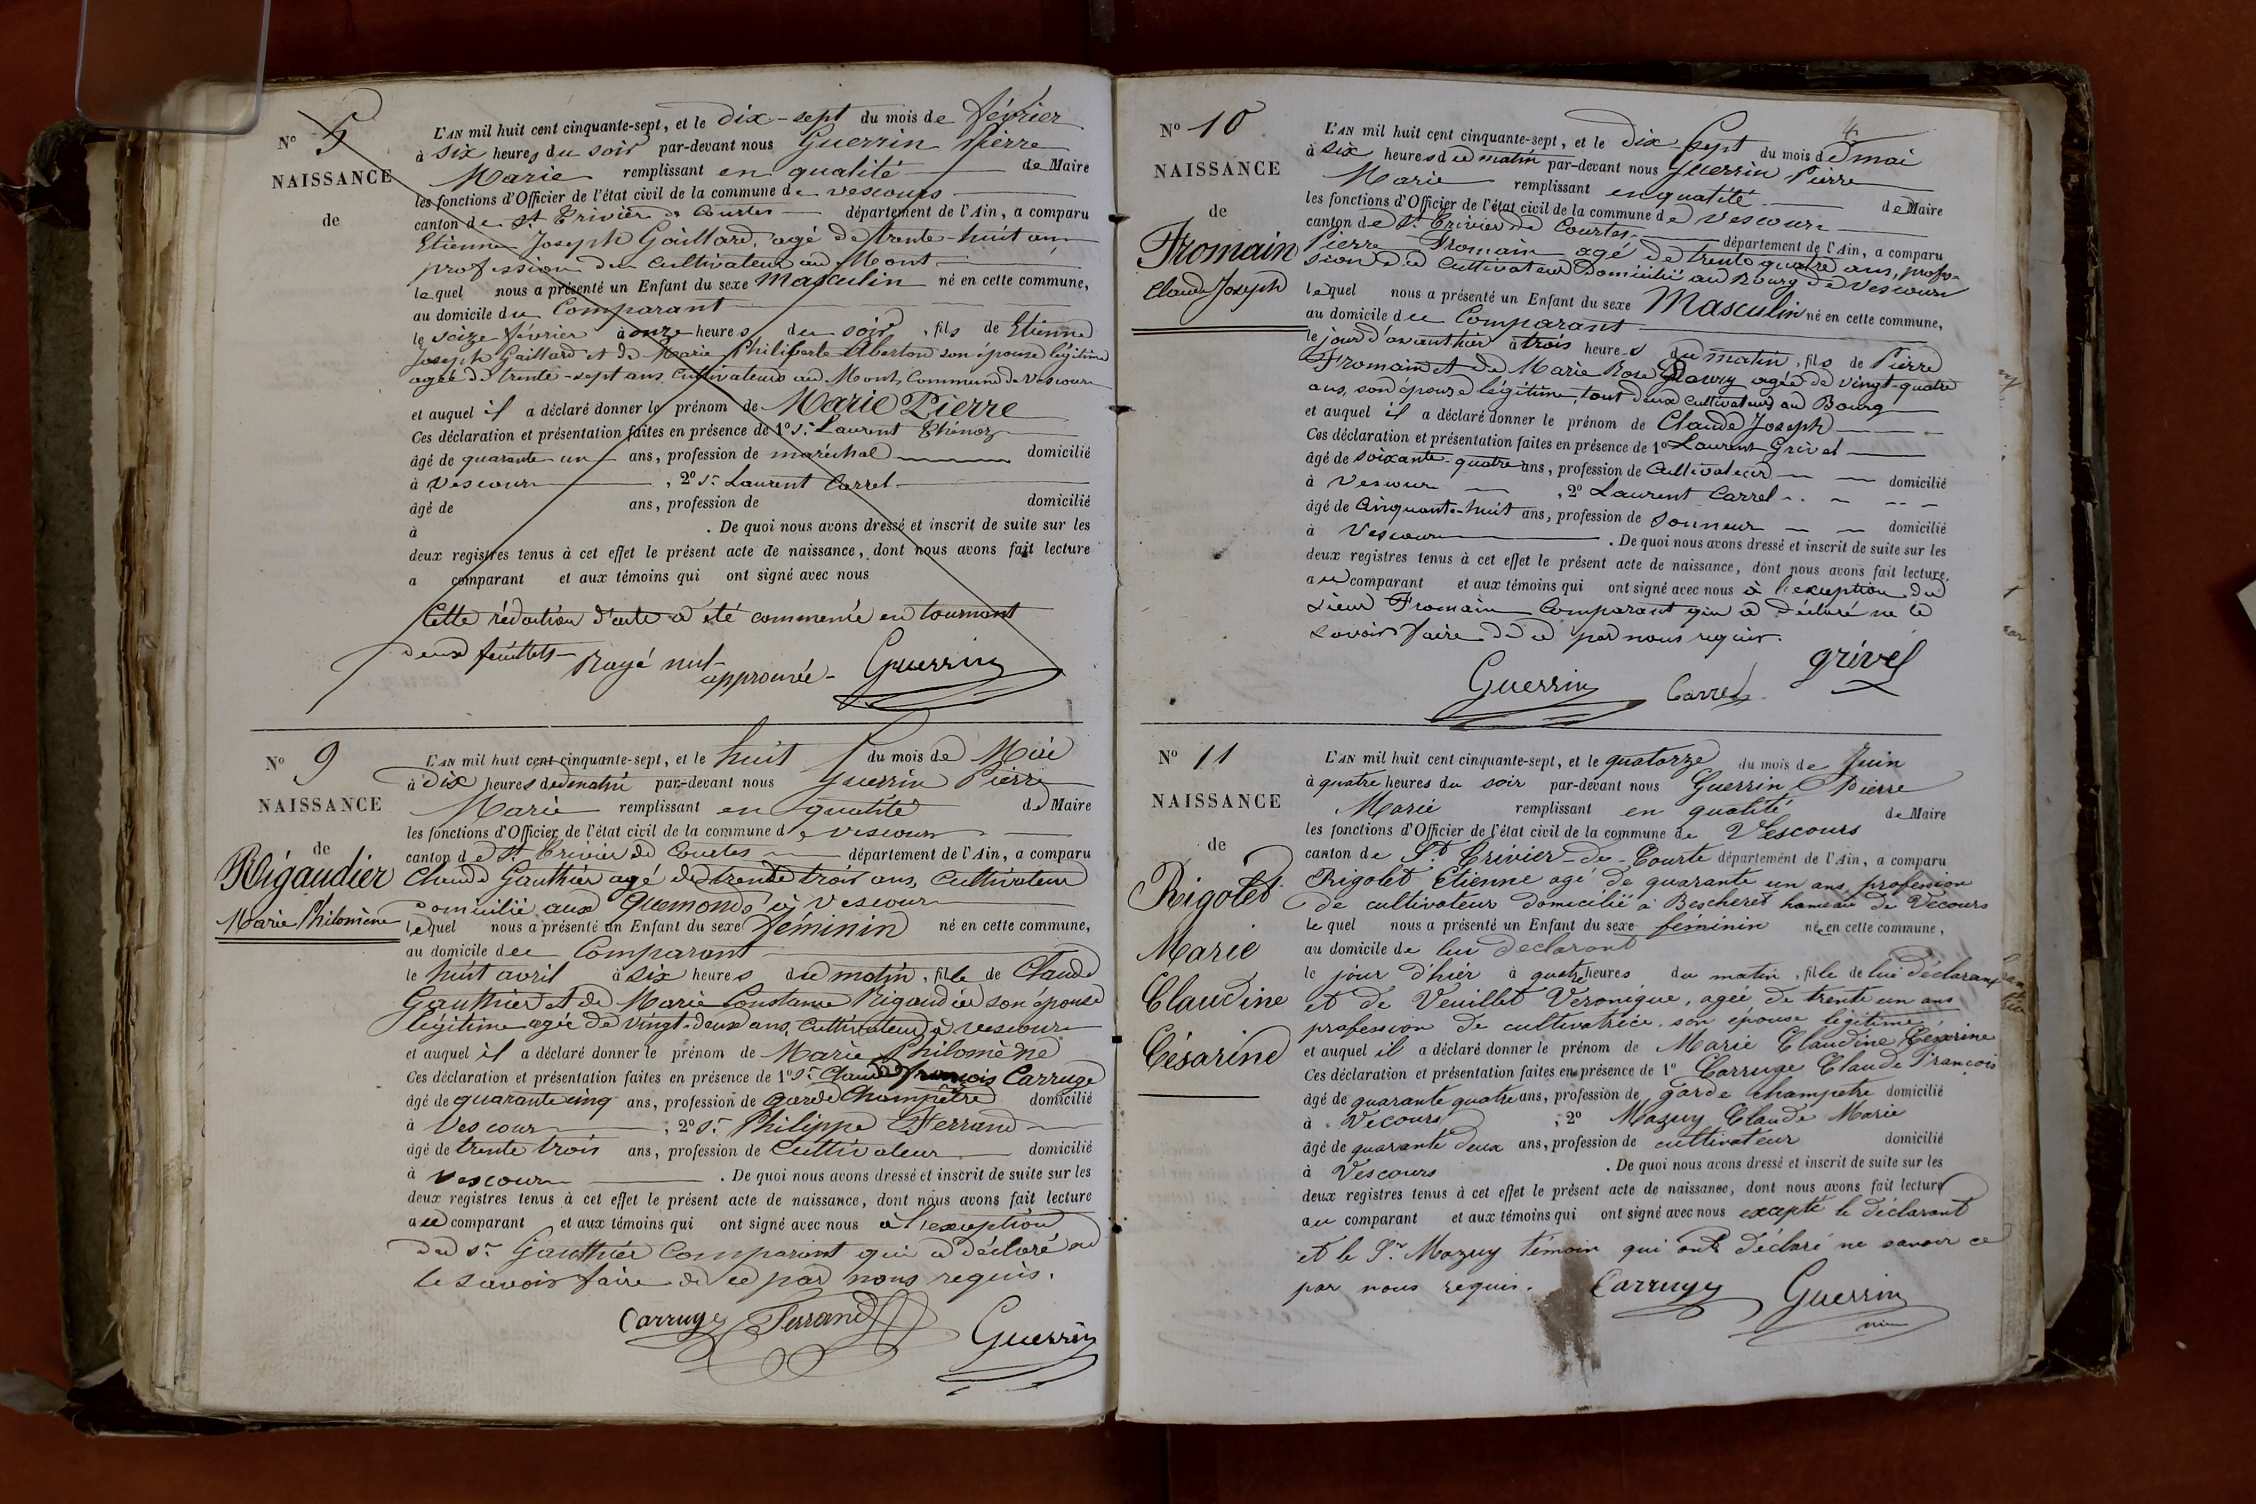 N° 5
NAISSANCE
de
L'AN mil huit cent cinquante-sept, et le dix-sept du mois de février
à six heures du soir par-devant nous Guerrin Pierre
Marie remplissant en qualité de Maire
les fonctions d'Officier de l'état civil de la commune de vescours
canton de St Trivier de Courtes département de l'Ain, a comparu
Etienne Joseph Gaillard, agé de trente-huit ans
profession de cultivateur au Mont
lequel nous a présenté un Enfant du sexe Masculin né en cette commune,
au domicile du Comparant
le seize février à onze heures du soir, fils de Etienne
Joseph Gaillard et de Marie Philiberte son épouse légitime
agée de trente-sept ans cultivateurs au Mont, Commune de Vescours
et auquel il a déclaré donner le prénom de Marie Pierre
Ces déclaration et présentation faites en présence de 1° Sr Laurent Thénoz
âgé de quarante un ans, profession de maréchal domicilié
à Vescours, 2° Sr Laurent Carrel
âgé de ans, profession de domicilié
à . De quoi nous avons dressé et inscrit de suite sur les
deux registres tenus à cet effet le présent acte de naissance, dont nous avons fait lecture
a comparant et aux témoins qui ont signé avec nous
Cette rédaction d'acte a été commencée en tournant
deux feuillets Rayé nul
approuvée Guerrin
N° 9
NAISSANCE
de
Rigaudier
Marie Philomène
L'AN mil huit cent cinquante-sept, et le huit du mois de Mai
à dix heures du matin par-devant nous Guerrin Pierre
Marie remplissant en qualité de Maire
les fonctions d'Officier de l'état civil de la commune de vescours
canton de St Trivier de Courtes département de l'Ain, a comparu
Claude Gauthier agé de trente trois ans, cultivateur
domicilié aux Guemonds à Vescours
lequel nous a présenté un Enfant du sexe féminin né en cette commune,
au domicile du Comparant
le huit avril à six heures du matin, fille de Claude
Gauthier et de Marie Constance Rigaudier son épouse
légitime agée de vingt-deux ans, cultivateurs à vescours
et auquel il a déclaré donner le prénom de Marie Philomène
Ces déclaration et présentation faites en présence de 1° Sr Claude françois Carruge
âgé de quarante cinq ans, profession de Garde Champêtre domicilié
à Vescours, 2° Sr Philippe Ferrand
âgé de trente trois ans, profession de Cultivateur domicilié
à vescours. De quoi nous avons dressé et inscrit de suite sur les
deux registres tenus à cet effet le présent acte de naissance, dont nous avons fait lecture
au comparant et aux témoins qui ont signé avec nous à l'exception
du sr Gauthier Comparant qui a déclaré ne
le savoir faire de ce par nous requis.
Carruge Ferrand Guerrin
N° 10
NAISSANCE
de
Fromain
Claude Joseph
L'AN mil huit cent cinquante-sept, et le dix sept du mois de mai
à six heures du matin par-devant nous Guerrin Pierre
Marie remplissant en qualité de Maire
les fonctions d'Officier de l'état civil de la commune de Vescours
canton de St Trivier de Courtes département de l'Ain, a comparu
Pierre Fromain agé de trente quatre ans, profes-
sion de cultivateur Domicilié au Bourg de Vescours
lequel nous a présenté un Enfant du sexe Masculin né en cette commune,
au domicile du Comparant
le jour d'avant hier à trois heures du matin, fils de Pierre
Fromain et de Marie Rose agée de vingt-quatre
ans, son épouse légitime, tout deux cultivateurs au Bourg
et auquel il a déclaré donner le prénom de Claude Joseph
Ces déclaration et présentation faites en présence de 1° Laurent Grivel
âgé de soixante-quatre ans, profession de Cultivateur domicilié
à Vescours, 2° Laurent Carrel
âgé de Cinquante-huit ans, profession de Sonneur domicilié
à Vescours. De quoi nous avons dressé et inscrit de suite sur les
deux registres tenus à cet effet le présent acte de naissance, dont nous avons fait lecture
au comparant et aux témoins qui ont signé avec nous à l'exception du
Sieur Fromain Comparant qui a Déclaré ne le
savoir faire de ce par nous requis.
Guerrin Carrel grivel
N° 11
NAISSANCE
de
Rigolet
Marie
Claudine
Césarine
L'AN mil huit cent cinquante-sept, et le quatorze du mois de Juin
à quatre heures du soir par-devant nous Guerrin Pierre
Marie remplissant en qualité de Maire
les fonctions d'Officier de l'état civil de la commune de Vescours
canton de St Trivier-de-Courte département de l'Ain, a comparu
Rigolet Etienne agé de quarante un ans profession
de cultivateur domicilié à Bescheret hameau de Vécours
lequel nous a présenté un Enfant du sexe féminin née en cette commune,
au domicile de lui declarant
le jour d'hier à quatre heures du matin, fille de lui déclarant
et de Veuillet Véronique, agée de trente un ans
profession de cultivatrice, son épouse légitime
et auquel il a déclaré donner le prénom de Marie Claudine Césarine
Ces déclaration et présentation faites en présence de 1° Carruge Claude François
âgé de quarante quatre ans, profession de garde champetre domicilié
à Vécours, 2° Mazuy Claude Marie
âgé de quarante deux ans, profession de cultivateur domicilié
à Vescours. De quoi nous avons dressé et inscrit de suite sur les
deux registres tenus à cet effet le présent acte de naissance, dont nous avons fait lecture
au comparant et aux témoins qui ont signé avec nous excepté le déclarant
et le Sr Mazuy témoin qui ont déclaré ne savoir ce
par nous requis. Carruge Guerrin